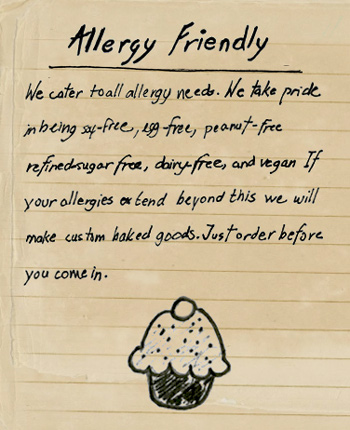 Allergy Friendly
We cater to all allergy needs. We take pride
in being soy-free, egg-free, peanut-free
refined sugar free, dairy-free, and vegan If
your allergies extend beyond this we will
make custom baked goods. Just order before
you come in.